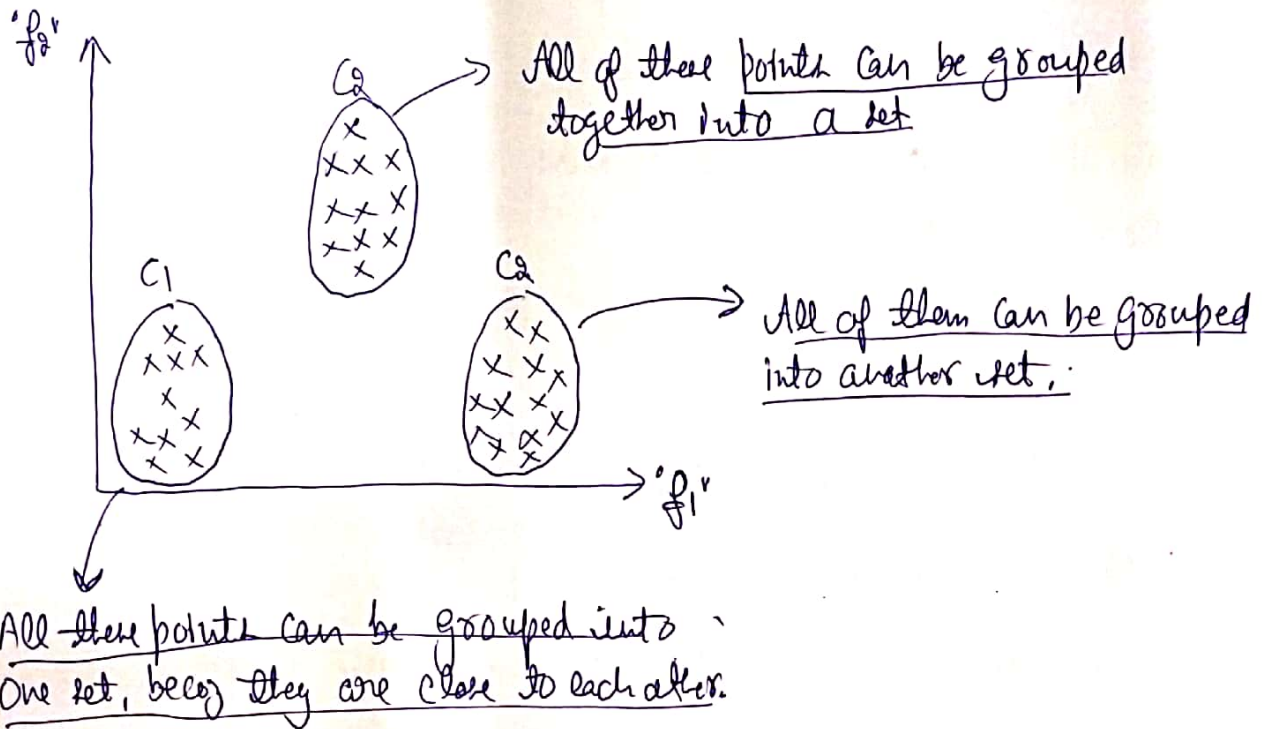 'f2'
C2
All of these points can be grouped
together into a set
C1
C2
All of them can be grouped
into another set.
'f1'
All these points can be grouped into
one set, becoz they are close to each other.